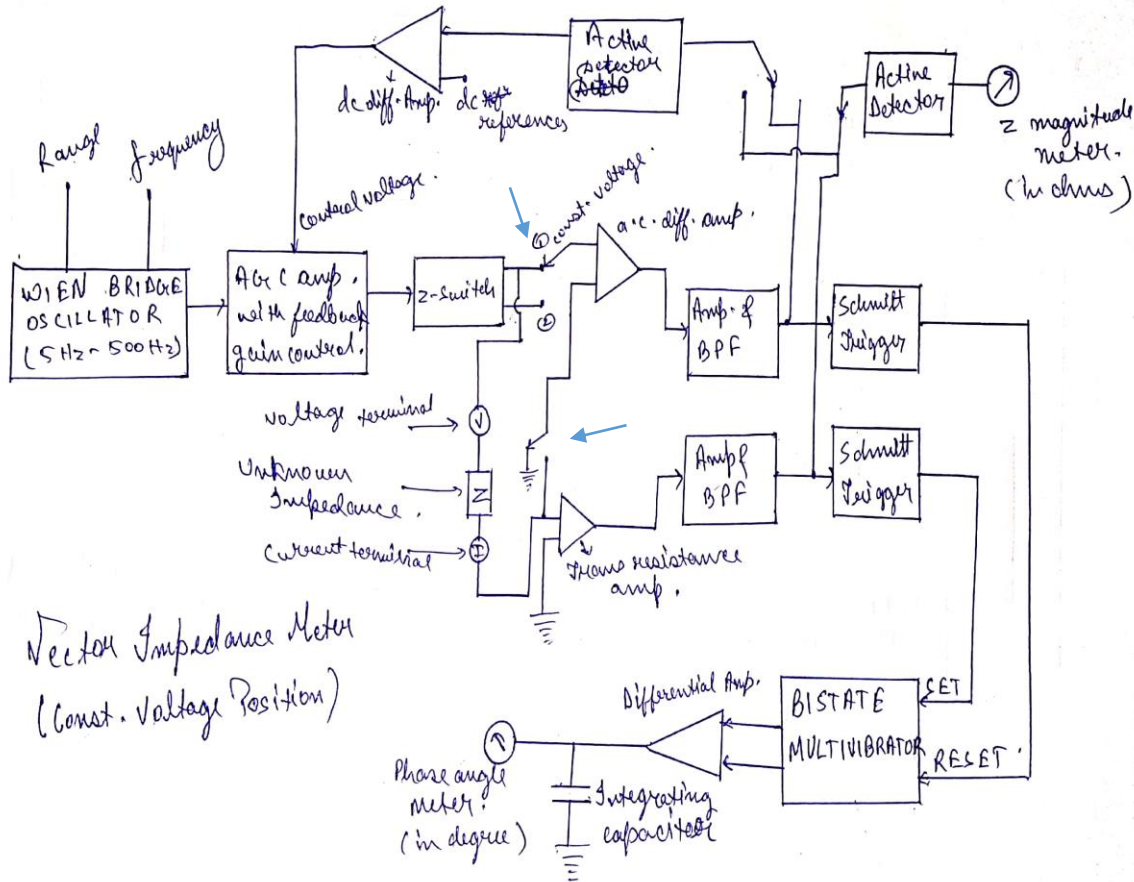 Active
Detector
dc diff. Amp.
dc
references
Active
Detector
Z magnitude
meter.
(in ohms)
Range
frequency
control voltage.
① const. voltage.
a.c. diff. amp.
WIEN BRIDGE
OSCILLATOR
(5Hz - 500Hz)
AGC amp.
with feedback
gain control.
Z-switch
②
Amp. &
BPF
Schmitt
Trigger
Voltage terminal
V
Unknown
Impedance.
Z
Current terminal
I
Amp &
BPF
Schmitt
Trigger
Trans resistance
amp.
Vector Impedance Meter
(Const. Voltage Position)
Differential Amp.
BISTATE
MULTIVIBRATOR
SET
RESET
Phase angle
meter.
(in degree)
Integrating
capacitor